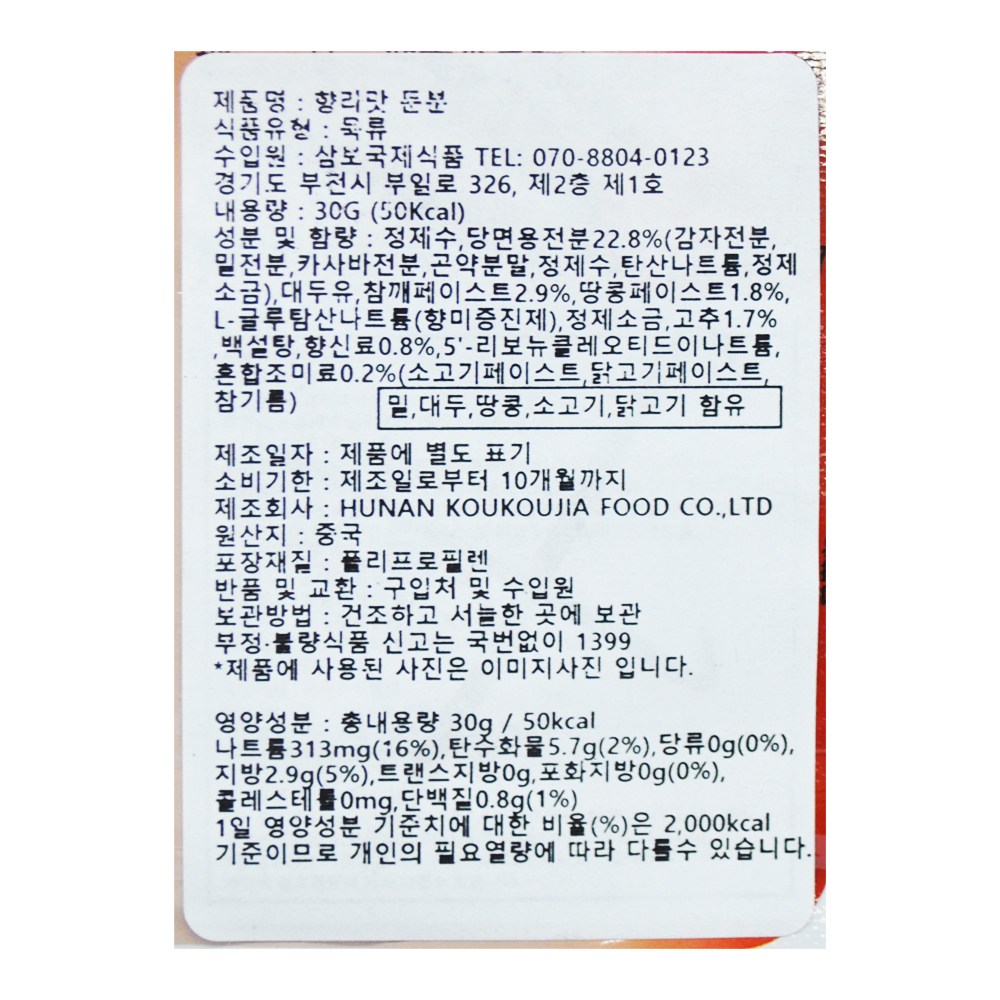 제품명 : 향라맛 둔분
식품유형 : 묵류
수입원 : 삼보국제식품 TEL: 070-8804-0123
경기도 부천시 부일로 326, 제2층 제1호
내용량 : 30G (50Kcal)
성분 및 함량 : 정제수,당면용전분22.8%(감자전분,
밀전분,카사바전분,곤약분말,정제수,탄산나트륨,정제
소금),대두유,참깨페이스트2.9%,땅콩페이스트1.8%,
L-글루탐산나트륨(향미증진제),정제소금,고추1.7%
,백설탕,향신료0.8%,5'-리보뉴클레오티드이나트륨,
혼합조미료0.2%(소고기페이스트,닭고기페이스트,
참기름)
밀,대두,땅콩,소고기,닭고기 함유
제조일자 : 제품에 별도 표기
소비기한 : 제조일로부터 10개월까지
제조회사 : HUNAN KOUKOUJIA FOOD CO.,LTD
원산지 : 중국
포장재질 : 폴리프로필렌
반품 및 교환 : 구입처 및 수입원
보관방법 : 건조하고 서늘한 곳에 보관
부정·불량식품 신고는 국번없이 1399
*제품에 사용된 사진은 이미지사진 입니다.
영양성분 : 총내용량 30g / 50kcal
나트륨313mg(16%),탄수화물5.7g(2%),당류0g(0%),
지방2.9g(5%),트랜스지방0g,포화지방0g(0%),
콜레스테롤0mg,단백질0.8g(1%)
1일 영양성분 기준치에 대한 비율(%)은 2,000kcal
기준이므로 개인의 필요열량에 따라 다를수 있습니다.